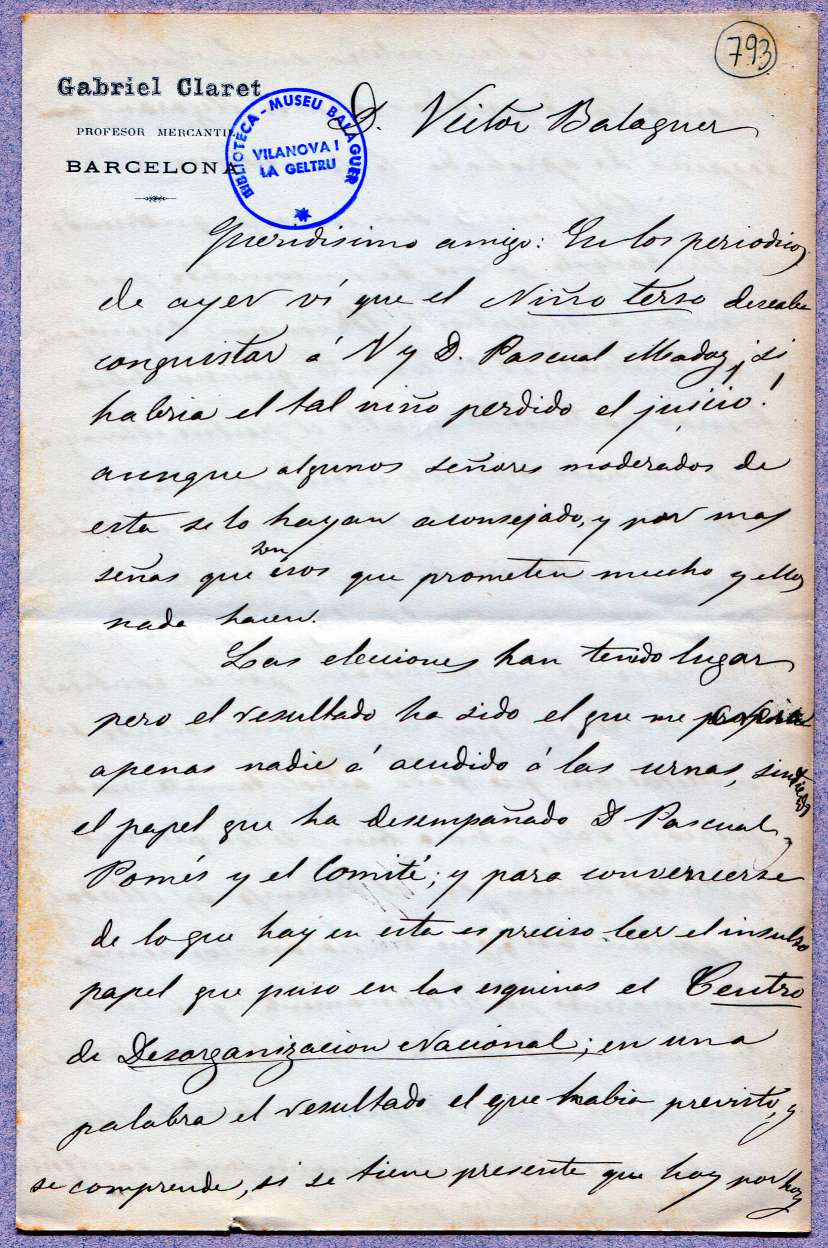 793
Gabriel Claret
PROFESOR MERCANTIL
BARCELONA
BIBLIOTECA - MUSEU BALAGUER
VILANOVA I
LA GELTRU
D. Victor Balaguer
Queridisimo amigo: En los periodicos
de ayer ví que el Niño terso deseaba
conquistar á V y D. Pascual Madoz ¡si
habria el tal niño perdido el juicio!
aunque algunos señores moderados de
esta se lo hayan aconsejado, y por mas
señas que son esos que prometen mucho y
nada hacen.
Las elecciones han tenido lugar
pero el resultado ha sido el que me
apenas nadie á acudido á las urnas,
el papel que ha desempañado D Pascual,
Pomés y el Comité; y para convencerse
de lo que hay en esta es preciso leer el insulso
papel que puso en las esquinas el Centro
de Desorganizacion Nacional; en una
palabra el resultado el que habia previsto, y
se comprende, si se tiene presente que hoy por hoy